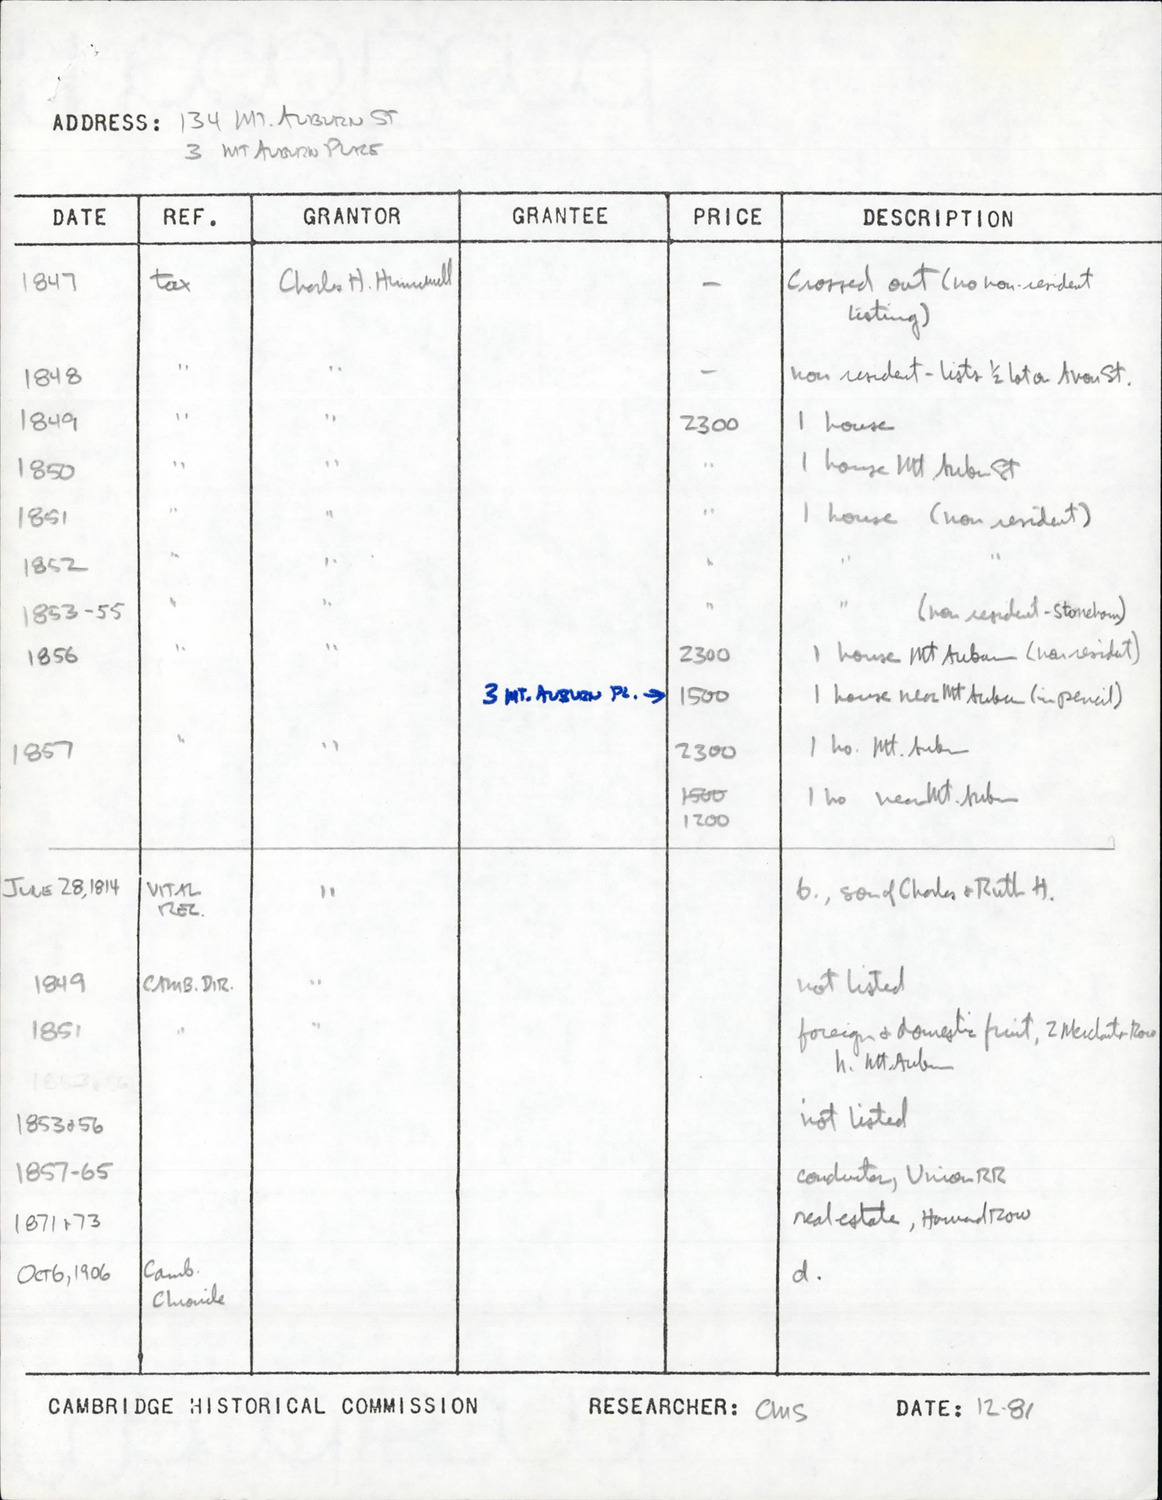 ADDRESS: 134 MT. AUBURN ST
3 MT AUBURN PLACE
DATE REF. GRANTOR GRANTEE PRICE DESCRIPTION
1847 tax Charles H. Hunnewell — Crossed out (no non-resident
listing)
1848 " " — non resident - lists ½ lot on Avon St.
1849 " " 2300 1 house
1850 " " " 1 house Mt Auburn St
1851 " " " 1 house (non resident)
1852 " " " " "
1853-55 " " " " (non resident - Stoneham)
1856 " " 2300 1 house Mt Auburn (non resident)
3 MT. AUBURN PL. → 1500 1 house near Mt Auburn (in pencil)
1857 " " 2300 1 ho. Mt. Auburn
1500 1 ho near Mt. Auburn
1200
JUNE 28, 1814 VITAL " b., son of Charles + Ruth H.
REC.
1849 CAMB. DIR. " not listed
1851 " " foreign & domestic fruit, 2 Merchants Row
h. Mt. Auburn
1853+56 not listed
1857-65 conductor, Union RR
1871+73 real estate, Howard Row
OCT 6, 1906 Camb. d.
Chronicle
CAMBRIDGE HISTORICAL COMMISSION RESEARCHER: CMS DATE: 12-81